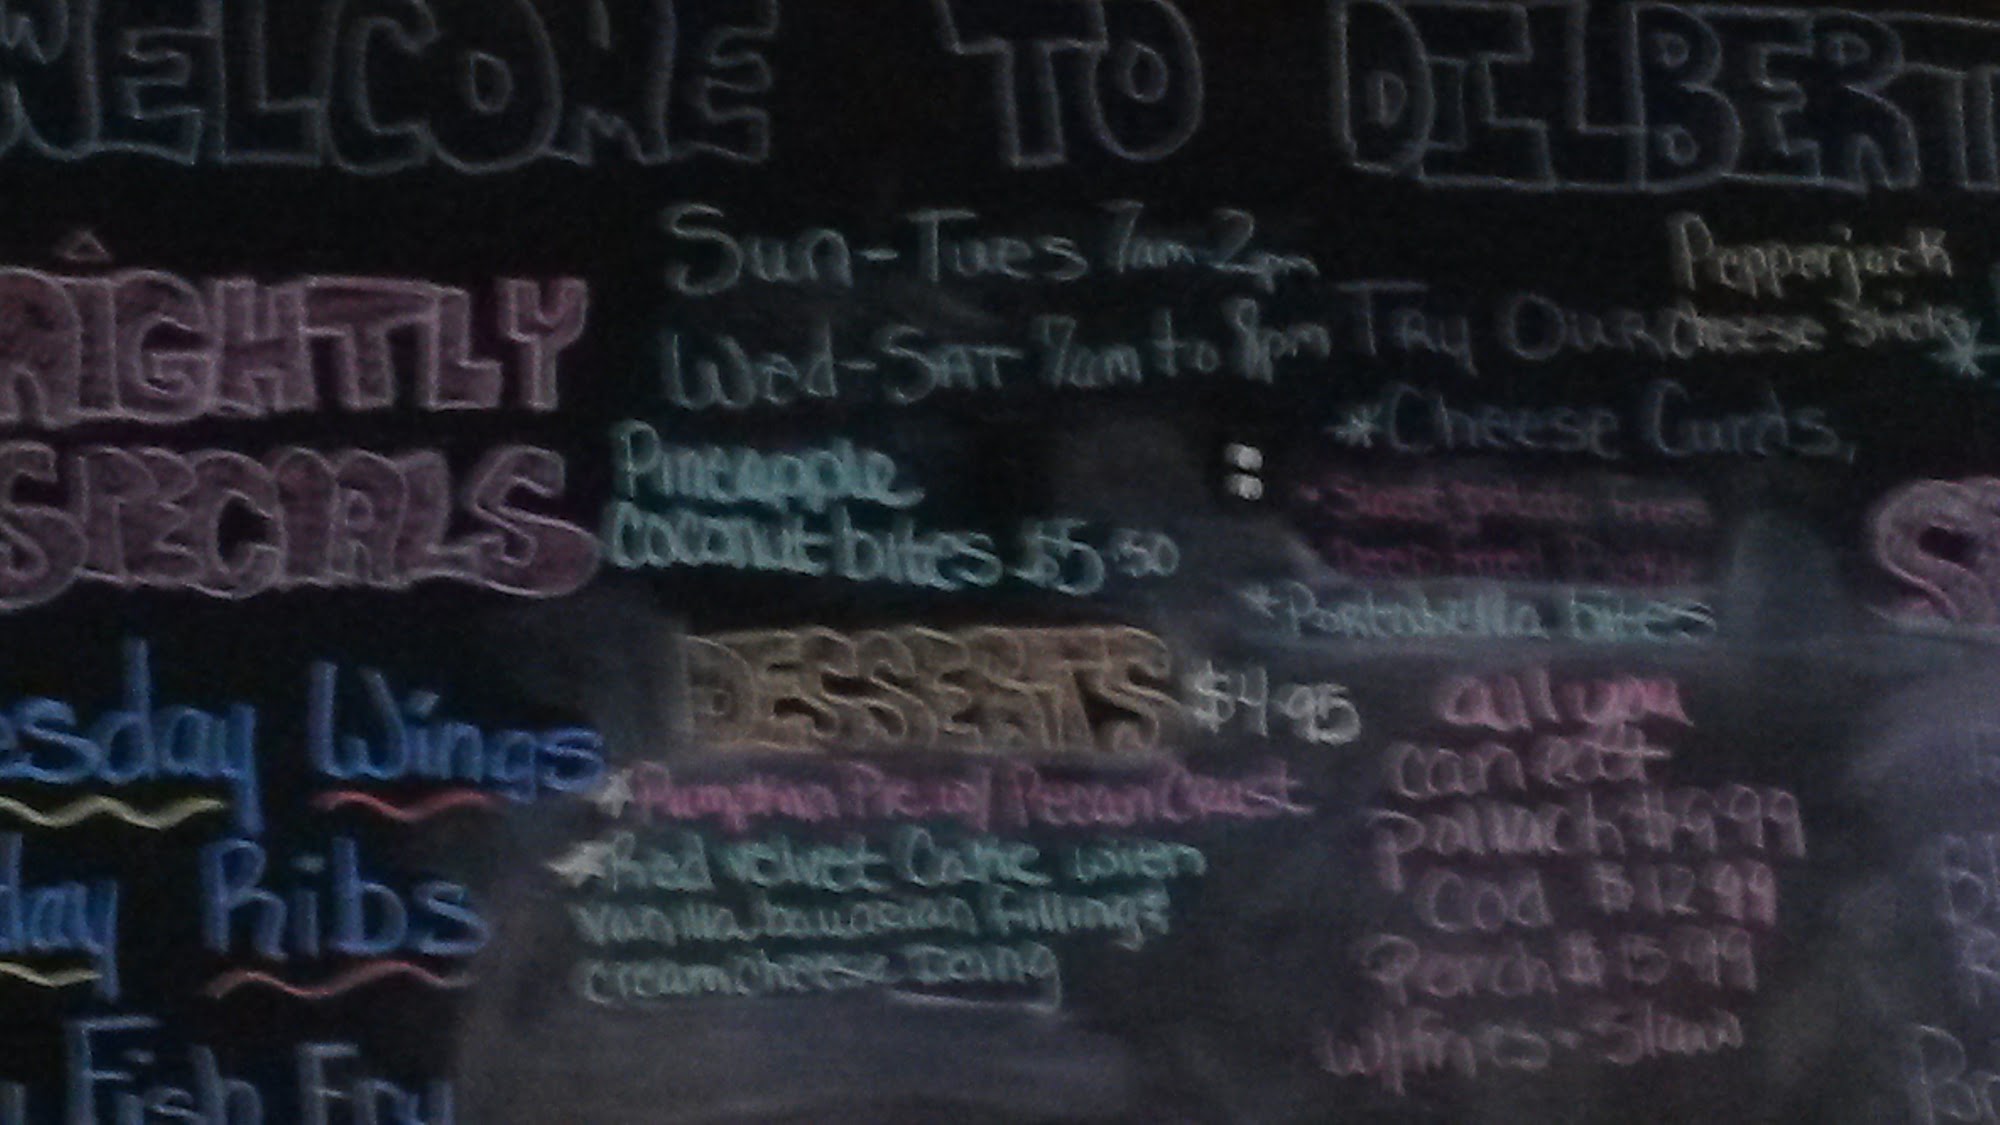 WELCOME TO DILBERT
NIGHTLY
SPECIALS
esday Wings
day Ribs
y Fish Fry
Sun-Tues 7am-2pm
Wed-SAT 7am to 8pm
Pineapple
coconut bites $5.50
DESSERTS $4.95
*Pumpkin Pie w/ Pecan Crust
*Red velvet Cake with
vanilla bavarian filling &
creamcheese Icing
Pepperjack
TRY OUR cheese Sticks
*Cheese Curds,
Sweet potato fries
*Portabella bites
all you
can eat
pollack $9.99
Cod $12.99
Perch $15.99
w/fries - Slaw